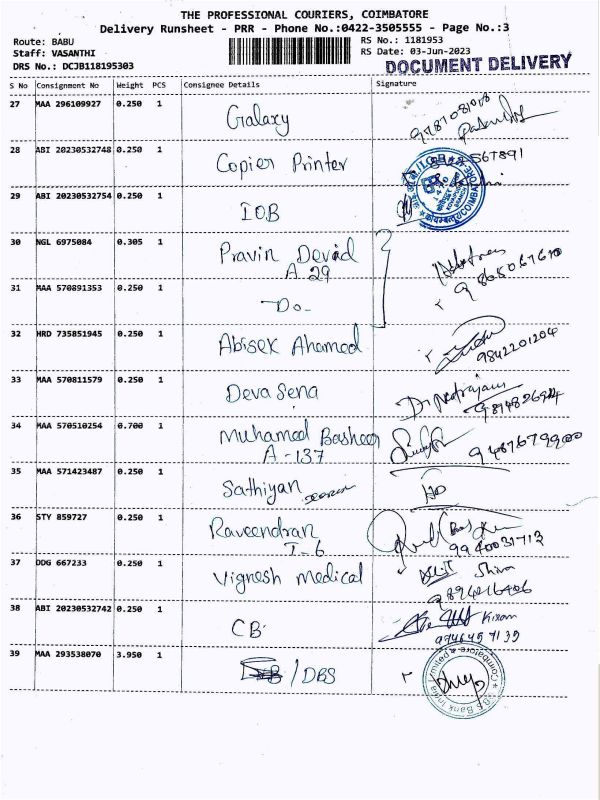 THE PROFESSIONAL COURIERS, COIMBATORE
Delivery Runsheet - PRR - Phone No.:0422-3505555 - Page No.:3
Route: BABU
RS No.: 1181953
Staff: VASANTHI
RS Date: 03-Jun-2023
DRS No.: DCJB118195303
DOCUMENT DELIVERY
S No Consignment No Weight PCS Consignee Details Signature
27 MAA 296109927 0.250 1 Galaxy
28 ABI 20230532748 0.250 1 Copier Printer
29 ABI 20230532754 0.250 1 IOB
30 NGL 6975084 0.305 1 Pravin Devid
A 29
31 MAA 570891353 0.250 1 -Do-
32 HRD 735851945 0.250 1 Abisek Ahamed
9842201204
33 MAA 570811579 0.250 1 Deva Sena
34 MAA 570510254 0.700 1 Muhamed Basheer
A-137
9487679900
35 MAA 571423487 0.250 1 Sathiyan
36 STY 859727 0.250 1 Raveendran
I-6
9940031713
37 DDG 667233 0.250 1 Vignesh Medical
Shiva
38 ABI 20230532742 0.250 1 CB
39 MAA 293538070 3.950 1 /DBS